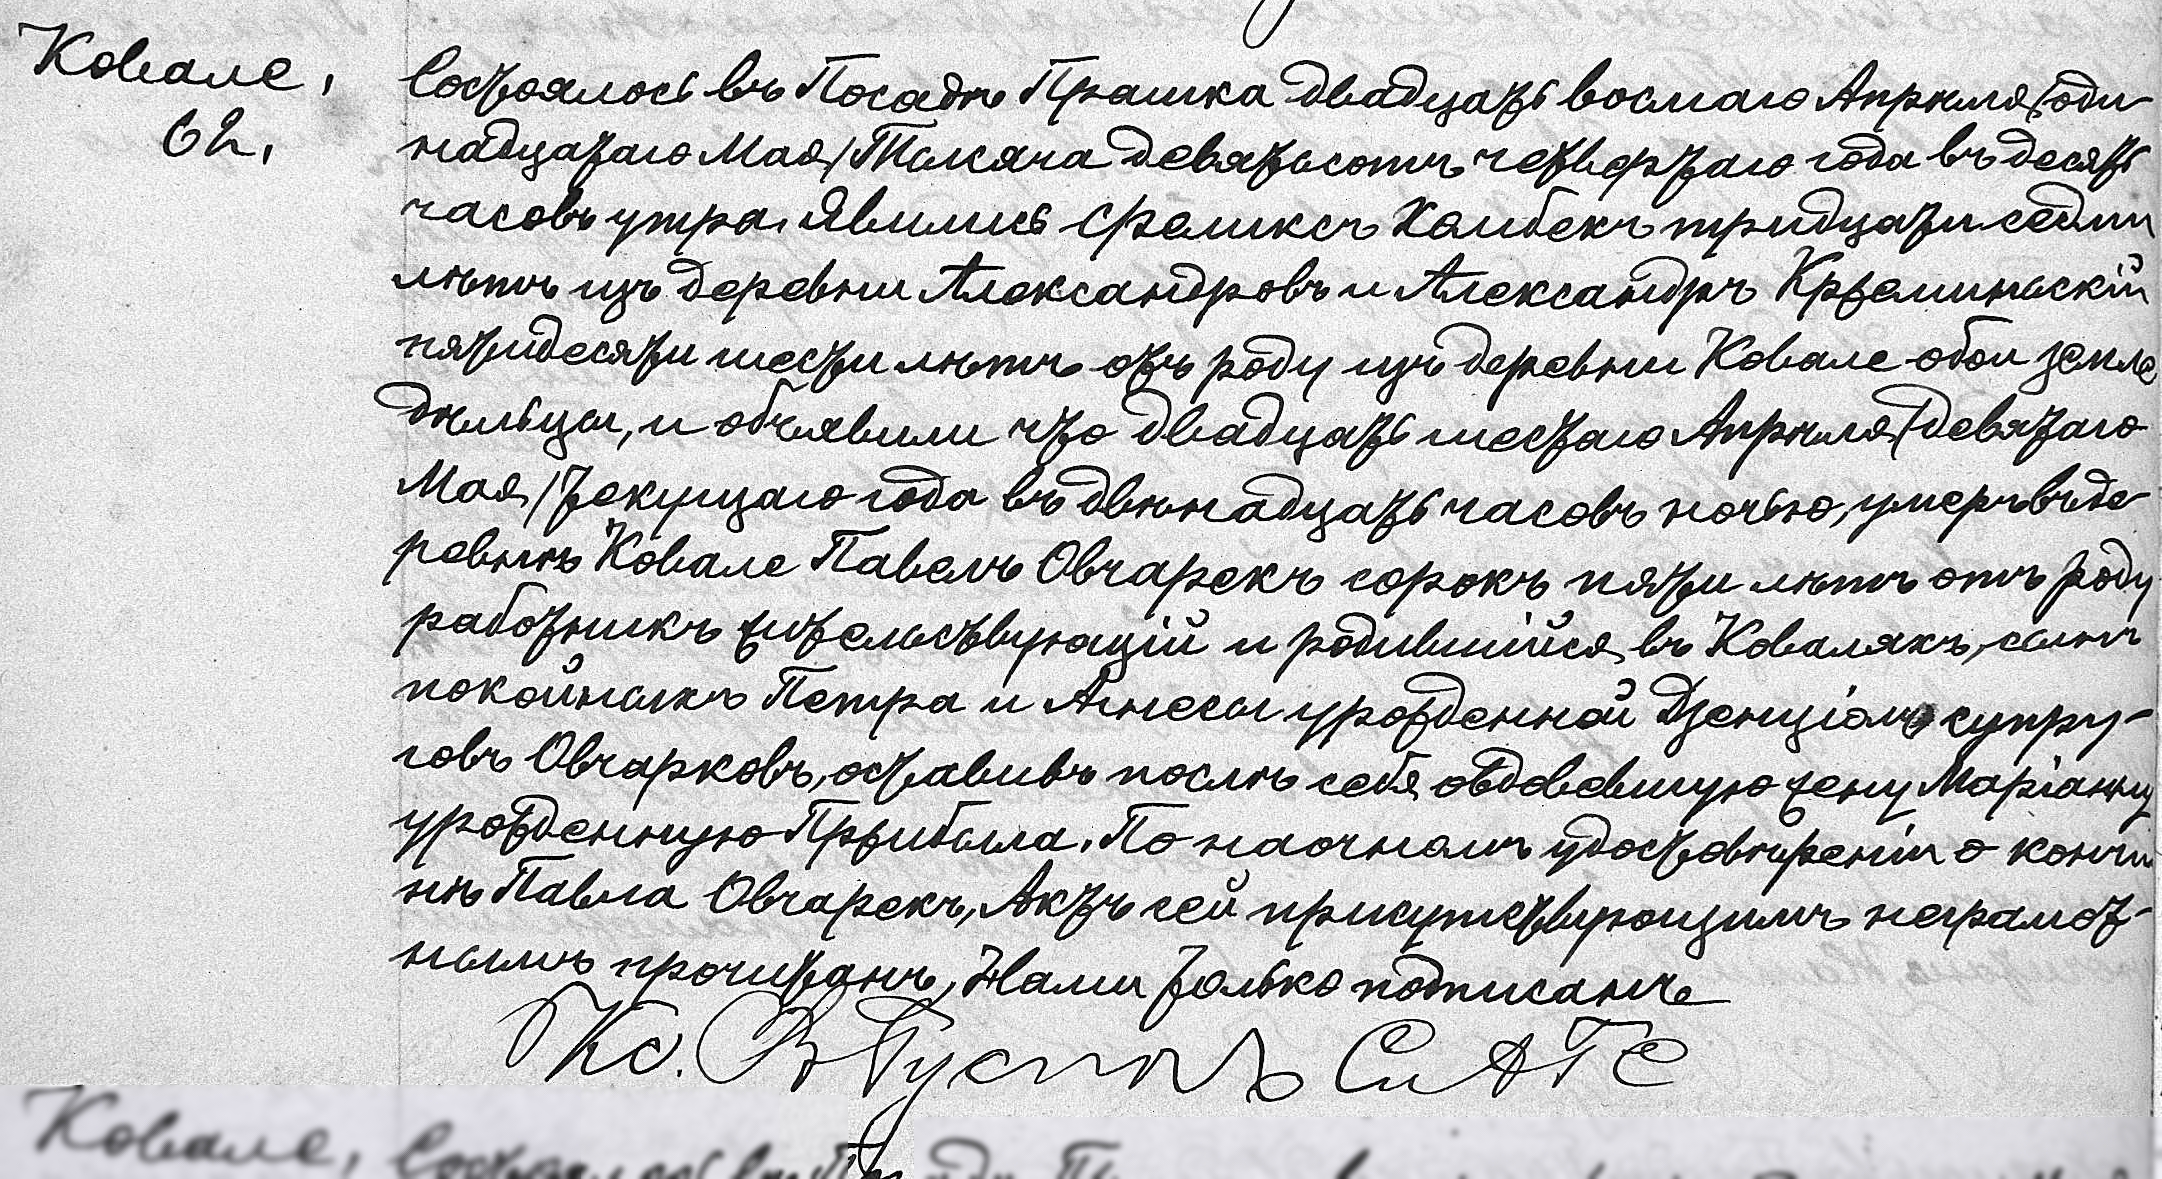 Ковале,
62,
Состоялось въ Посадѣ Прашка двадцать восмаго Апрѣля/оди-
надцатаго Мая/Тысяча девятьсотъ четвертаго года въ десять
часовъ утра. Явились Феликсъ Хаибекъ тридцати седми
лѣтъ изъ деревни Александровъ и Александръ Крземинскій
пятидесяти шести лѣтъ отъ роду изъ деревни Ковале оба земле
дѣльцы, и объявили что двадцать шестаго Апрѣля/девятаго
Мая/текущаго года въ двѣнадцать часовъ ночью, умеръ въ де-
ревнѣ Ковале Павелъ Овчарекъ сорокъ пяти лѣтъ отъ роду
работникъ жительствующій и родившійся въ Ковалякъ, сынъ
покойныхъ Петра и Агнесы урожденной супру-
говъ Овчарковъ, оставивъ послѣ себя овдовевшую жену Маріанну
урожденную Пржибыла. По наочномъ удостовѣреніи о кончи
нѣ Павла Овчарекъ, Актъ сей присутствующимъ неграмот-
нымъ прочитанъ, Нами только подписанъ
Кс.
Ковале,